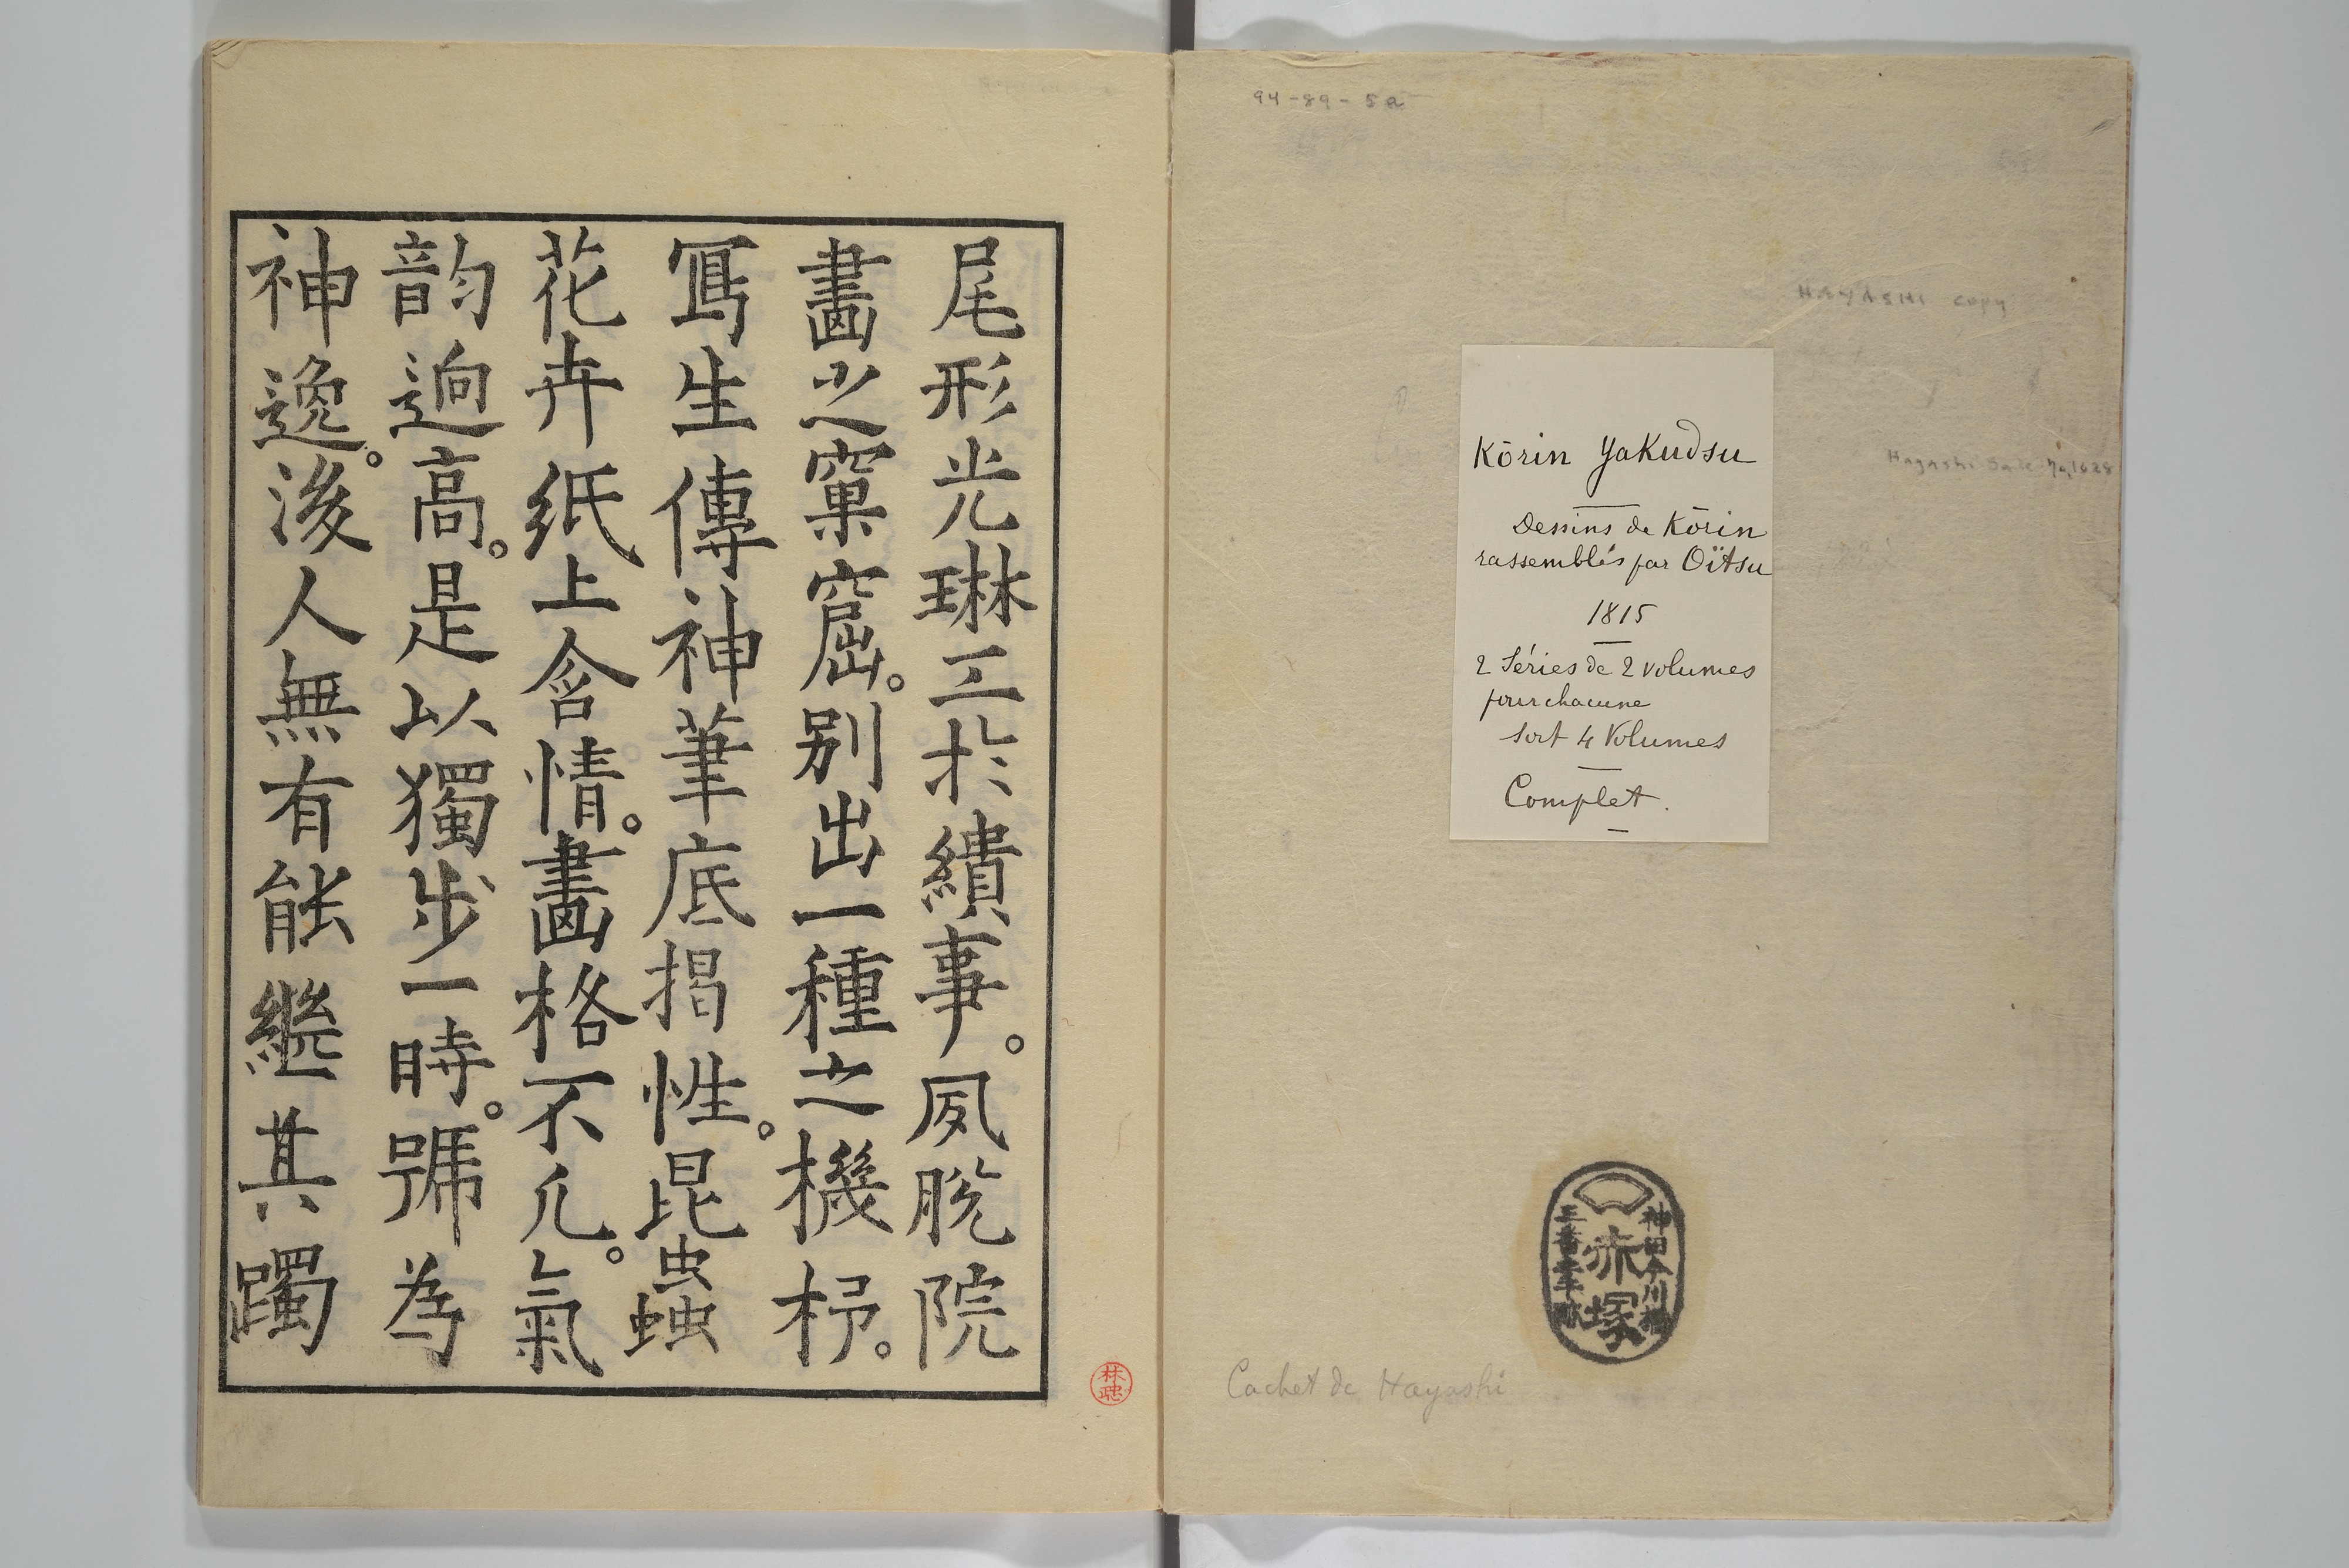 94-89-5a
HAYASHI copy
Hayashi Sale No 1628
Kōrin Yakudsu
Dessins de Kōrin
rassemblés par Oïtsu
1815
2 Séries de 2 volumes
pour chacune
soit 4 Volumes
Complet.
神田今川橋
赤塚
Cachet de Hayashi
尾形光琳工於繢事。夙脫院
畫之窠窟。別出一種之機杼。
寫生傳神筆底揭性。昆蟲
花卉紙上含情。畫格不凡。氣
韵逈高。是以獨步一時。號為
神逸。後人無有能繼其躅
林忠